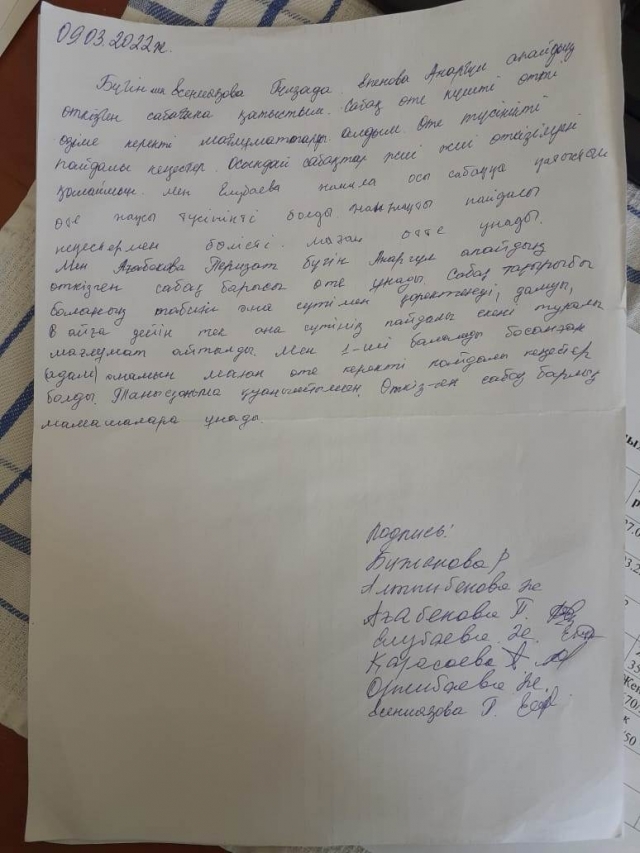 09.03.2022ж.
Бүгін мен Есениязова Гүлзада. Анаргүл апайдың
өткізген сабағына қатыстым. Сабақ өте күшті өтті.
өзіме керекті мағлұматтарды алдым. Өте түсінікті
пайдалы кеңестер. Осындай сабақтар жиі жиі өткізілуін
қалаймын. Мен Елубаева осы сабаққа
өте жақсы түсінікті болды. пайдасы
кеңестермен бөлісті. маған өтте ұнады.
Мен Агабекова Перизат бүгін Анаргүл апайдың
өткізген сабақ барысы өте ұнады. Сабақ тақырыбы
баланың табиғи ана сүтімен қоректенуі, дамуы,
6 айға дейін тек ана сүтінің пайдалы екені туралы
мағлумат айтылды. Мен 1-ші баламды босанған
(адам) анамын маған өте керекті пайдалы кеңестер
болды. Танысқаныма қуаныштымын. Өткізген сабақ барлық
мамашаларға ұнады.
Подпись:
Бужанова Р
Алтынбекова Ж
Агабекова П.
Елубаева Ж.
Карасаева А
Орынбаева Ж.
Есениязова Г.